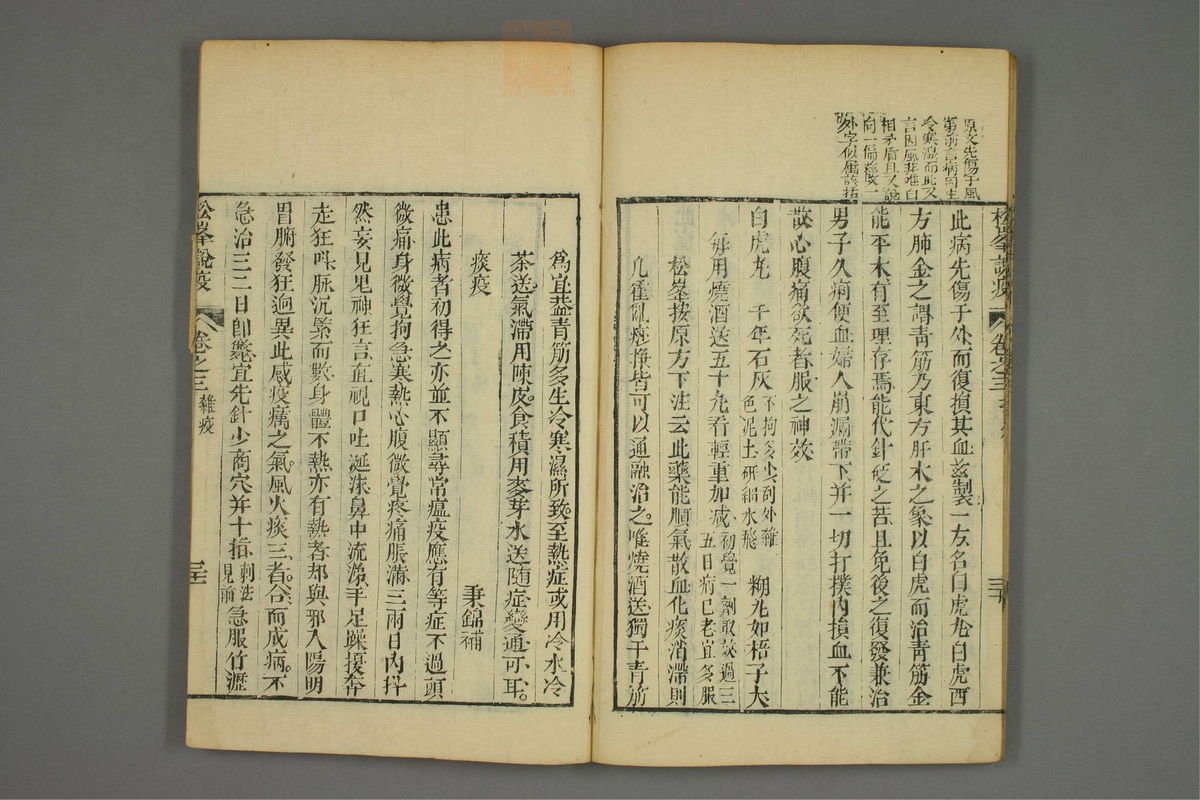 原文先傷于風
第前言病司生
冷寒濕而此又
言因風非惟自
相矛盾且又說
向一偏茲改一
外字似屬該括
此病先傷于外而復損其血茲製一方名白虎丸白虎西
方肺金之謂青筋乃東方肝木之象以白虎而治青筋金
能平木有至理存焉能代針砭之苦且免後之復發兼治
男子久痢便血婦人崩漏帶下并一切打撲內損血不能
散心腹痛欲死者服之神效
白虎丸 千年石灰 不拘多少刮外雜色泥土研細水飛 糊丸如梧子大
每用燒酒送五十丸看輕重加減 初覺一劑取效過三五日病已老宜多服
松峯按原方下注云此藥能順氣散血化痰消滯則
凡霍亂痧脹皆可以通融治之唯燒酒送獨于青筋
松峯說疫 卷之三
爲宜葢青筋多生冷寒濕所致至熱症或用冷水冷
茶送氣滯用陳皮食積用麥芽水送随症變通可耳
痰疫 秉錦補
患此病者初得之亦並不顯尋常瘟疫應有等症不過頭
微痛身微覺拘急寒熱心腹微覺疼痛脹滿三兩日內抖
然妄見鬼神狂言直視口吐涎沫鼻中流涕手足躁擾奔
走狂叫脉沉緊而數身體不熱亦有熱者却與邪入陽明
胃腑發狂迥異此感疫癘之氣風火痰三者合而成病不
急治三二日卽斃宜先針少商穴并十指 刺法見前 急服竹瀝
松峯說疫 卷之三 雜疫